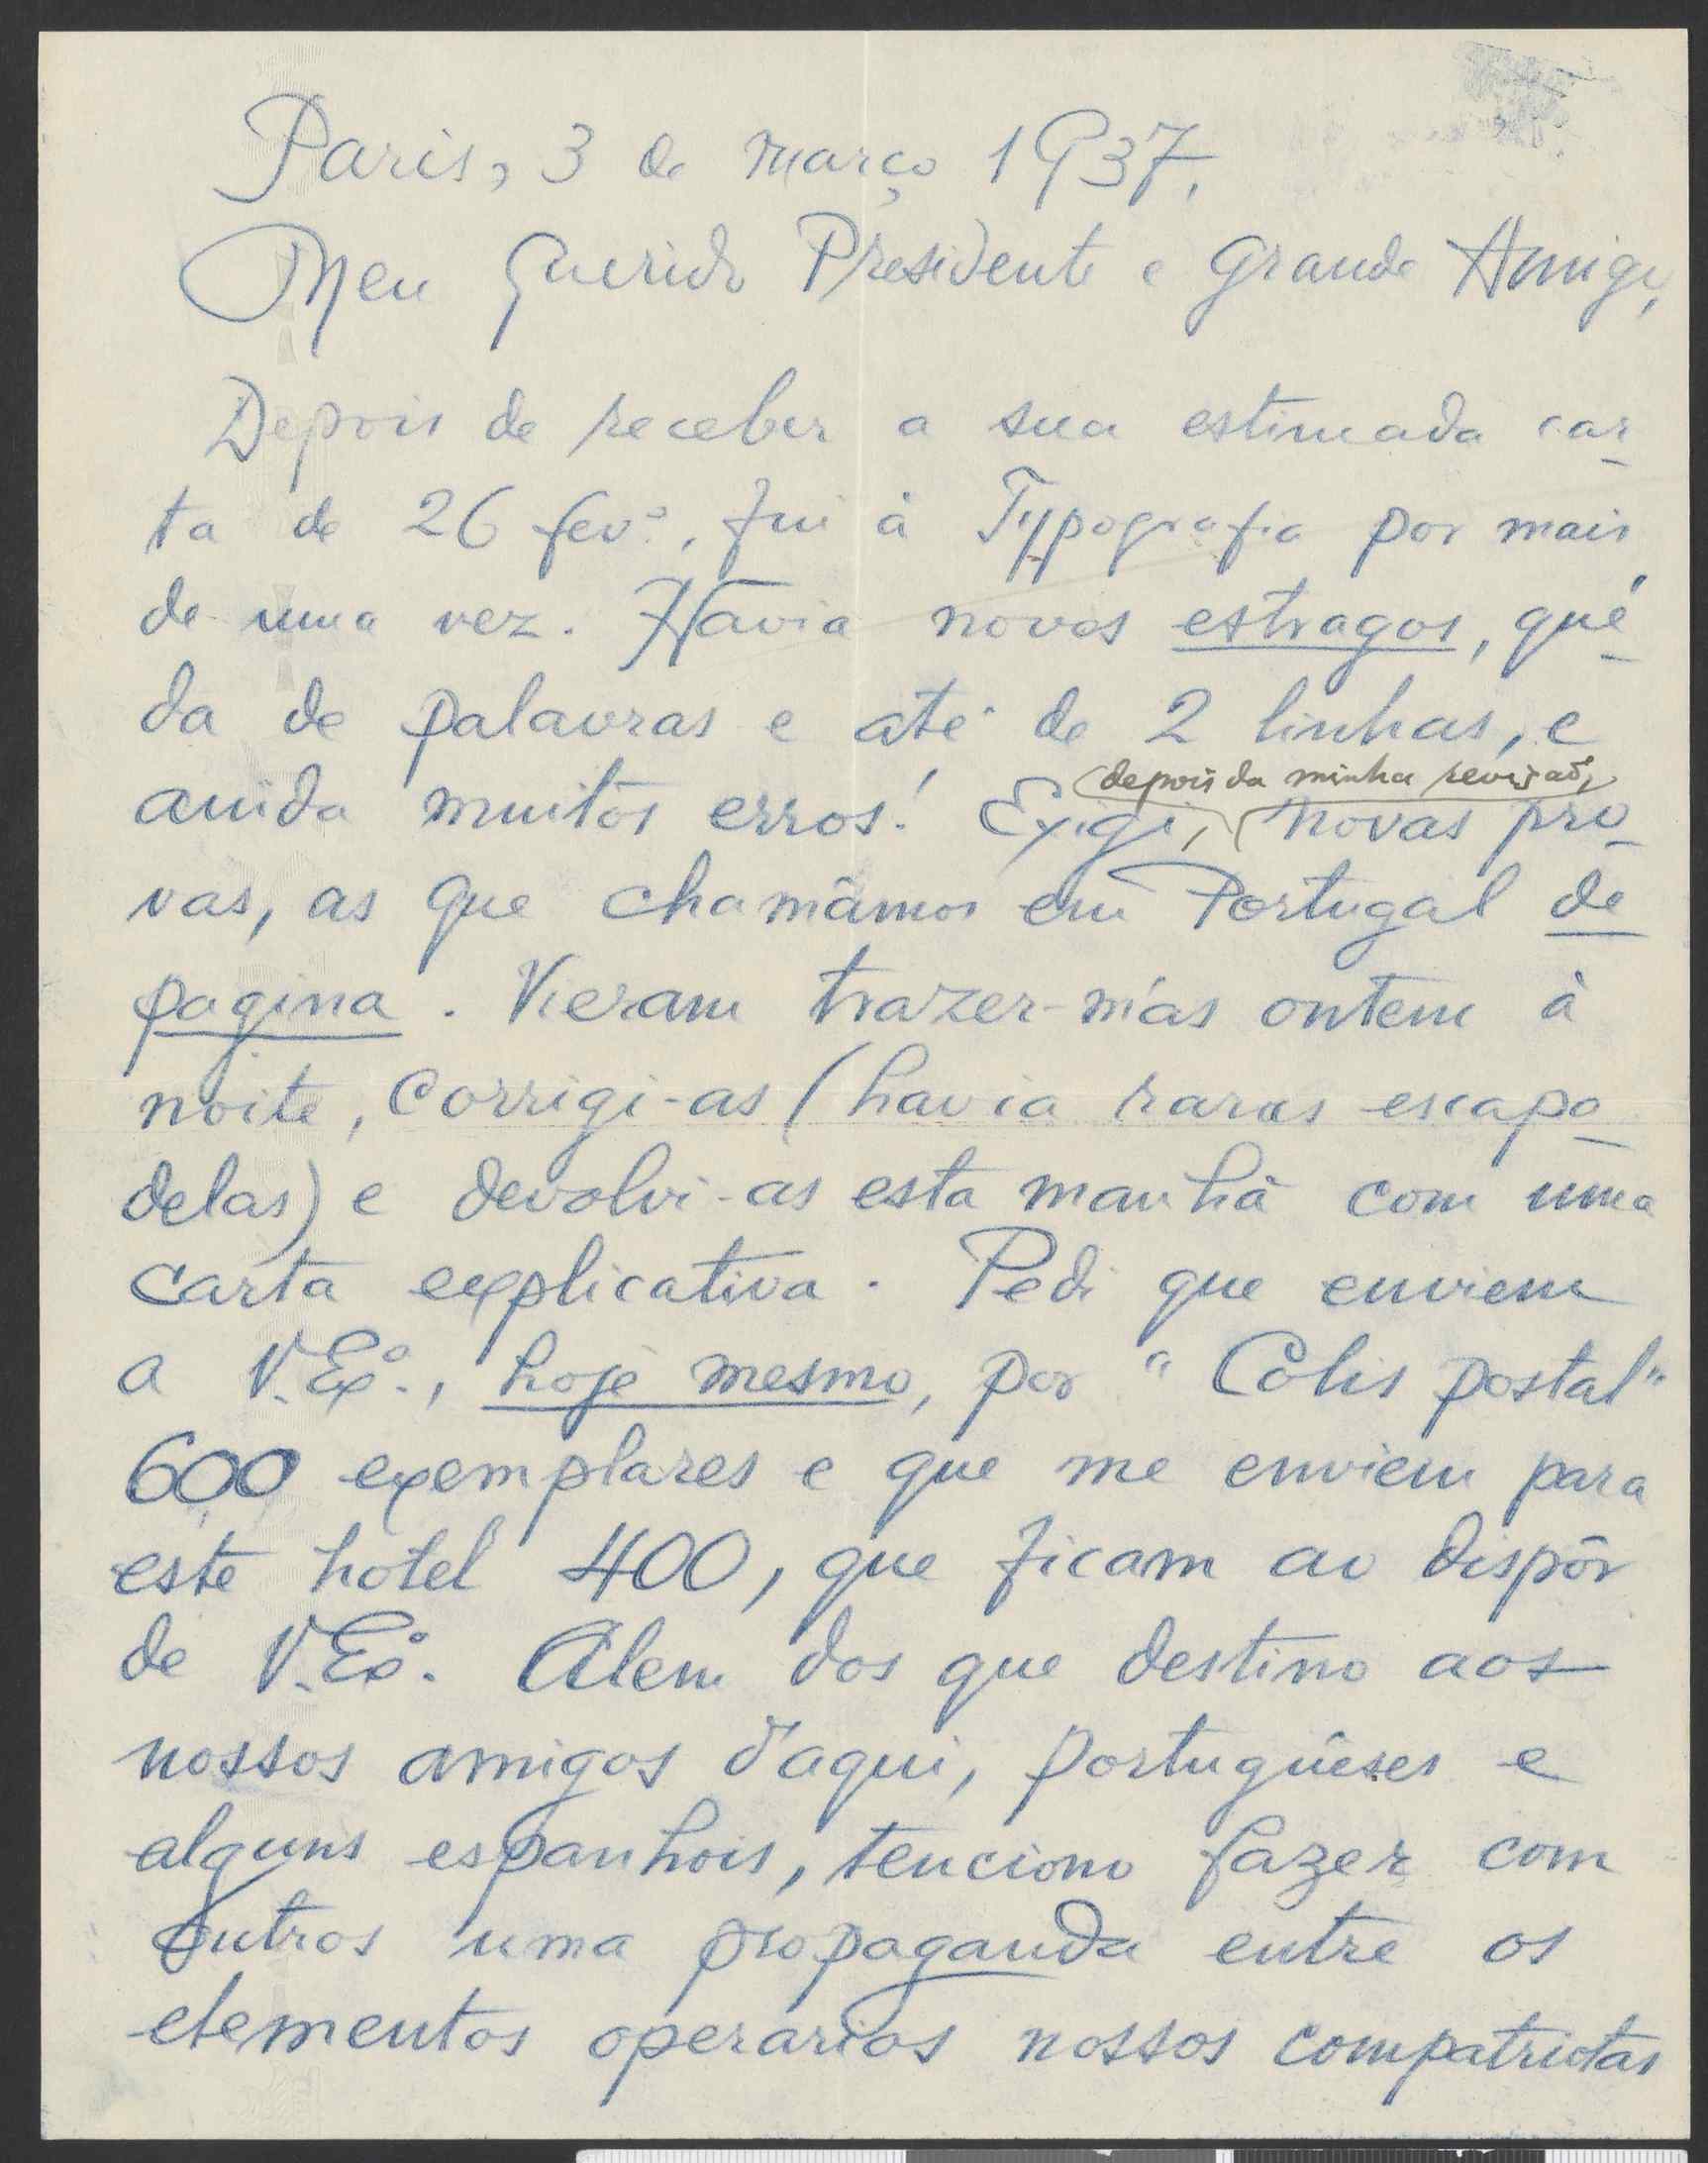 Paris, 3 de março 1937.
Meu Querido Presidente e Grande Amigo,
Depois de receber a sua estimada car-
ta de 26 fevº., fui à Typografia por mais
de uma vez. Havia novos estragos, qué-
da de palavras e até de 2 linhas, e
ainda muitos erros! Exigi, (depois da minha revisão,) novas pro-
vas, as que chamâmos em Portugal de
pagina. Vieram trazer-m'as ontem à
noite, corrigi-as (havia raras escapa-
delas) e devolvi-as esta manhã com uma
carta explicativa. Pedi que enviem
a V. Exº., hoje mesmo, por "Colis postal"
600 exemplares e que me enviem para
este hotel 400, que ficam ao dispôr
de V. Exº. Alem dos que destino aos
nossos amigos d'aqui, portuguêses e
alguns espanhois, tenciono fazer com
outros uma propaganda entre os
elementos operarios nossos compatriotas